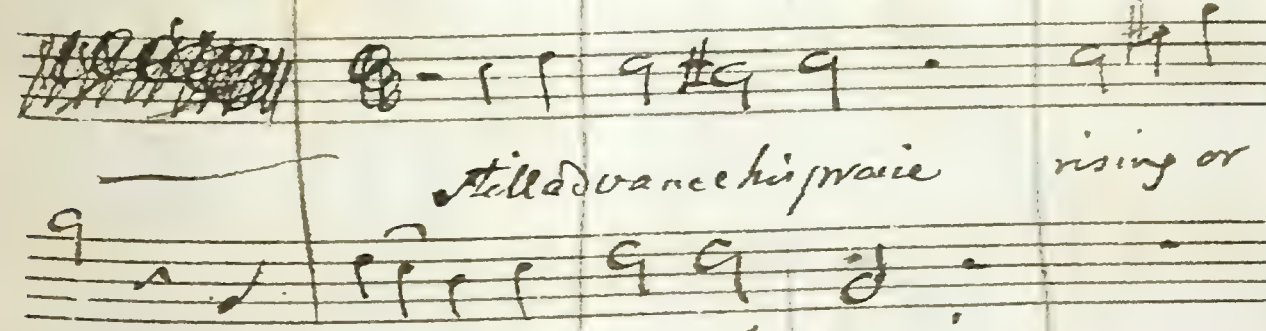 Still advance his praise rising or